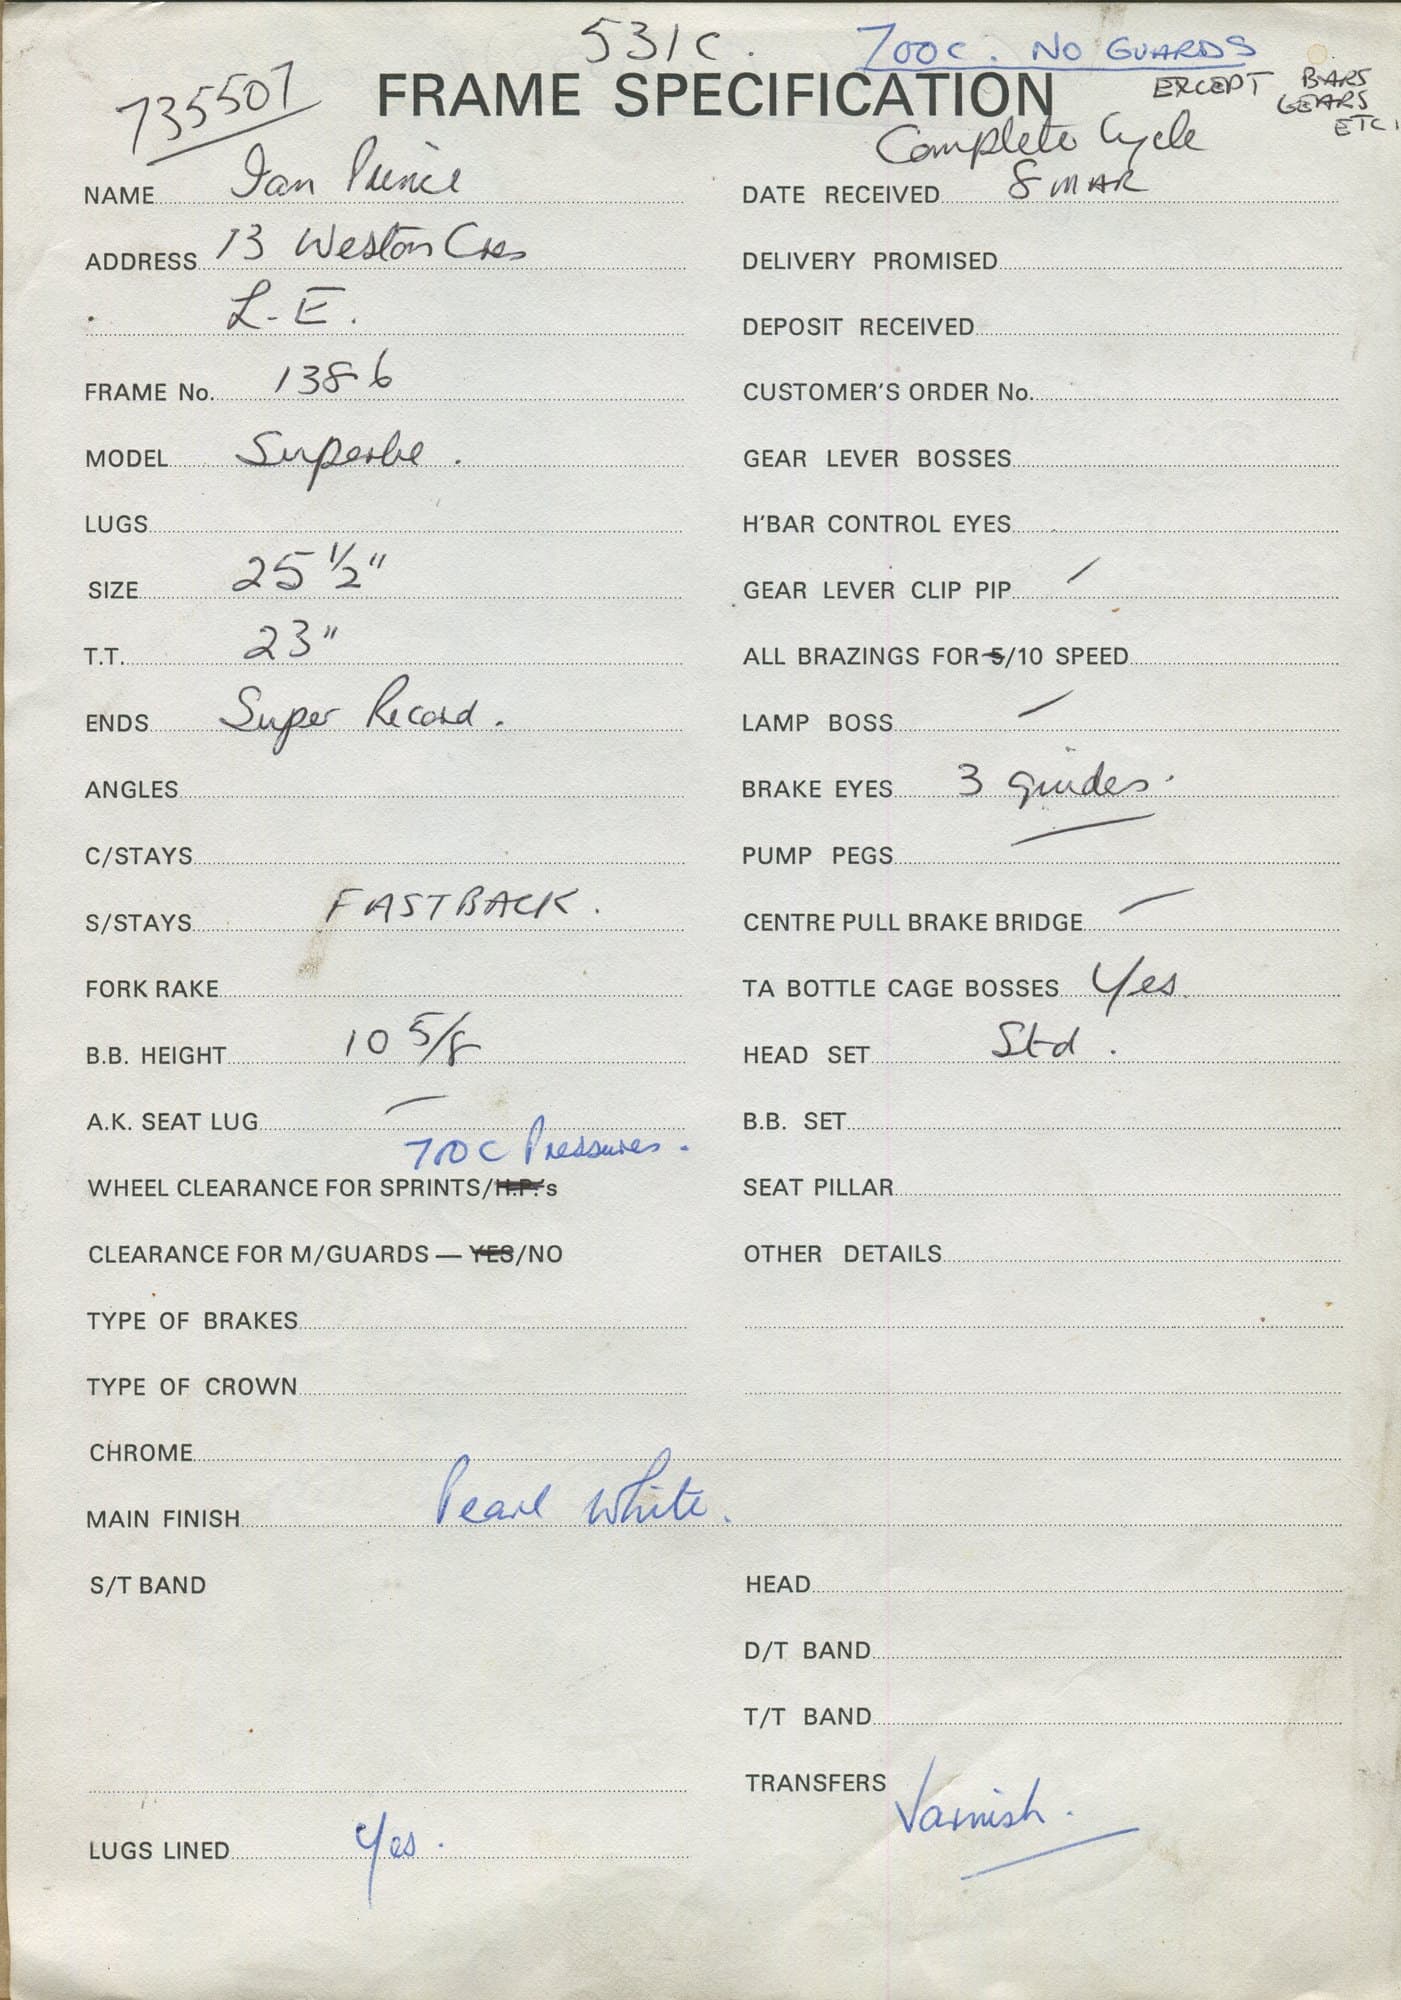 531C.
700C. NO GUARDS
735507
FRAME SPECIFICATION
EXCEPT BARS
GEARS
ETC.
Complete Cycle
NAME Ian Prince
DATE RECEIVED 8 MAR
ADDRESS 13 Weston Cres
DELIVERY PROMISED
L.E.
DEPOSIT RECEIVED
FRAME No. 1386
CUSTOMER'S ORDER No.
MODEL Superbe.
GEAR LEVER BOSSES
LUGS
H'BAR CONTROL EYES
SIZE 25 1/2"
GEAR LEVER CLIP PIP /
T.T. 23"
ALL BRAZINGS FOR 5/10 SPEED
ENDS Super Record.
LAMP BOSS /
ANGLES
BRAKE EYES 3 guides.
C/STAYS
PUMP PEGS
S/STAYS FASTBACK.
CENTRE PULL BRAKE BRIDGE —
FORK RAKE
TA BOTTLE CAGE BOSSES Yes.
B.B. HEIGHT 10 5/8
HEAD SET Std.
A.K. SEAT LUG —
B.B. SET
700C Pressures.
WHEEL CLEARANCE FOR SPRINTS/H.P.'s
SEAT PILLAR
CLEARANCE FOR M/GUARDS — YES/NO
OTHER DETAILS
TYPE OF BRAKES
TYPE OF CROWN
CHROME
MAIN FINISH Pearl White.
S/T BAND
HEAD
D/T BAND
T/T BAND
TRANSFERS Varnish.
LUGS LINED Yes.